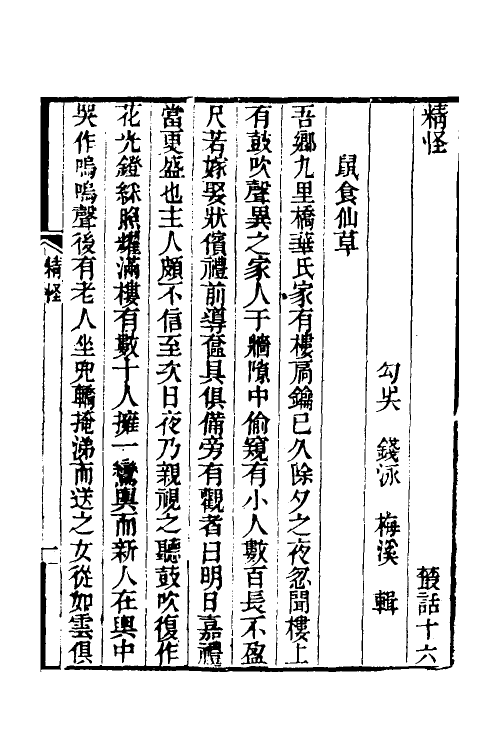 精怪 叢話十六
勾吳 錢泳 梅溪 輯
鼠食仙草
吾鄉九里橋華氏家有樓扃鑰已久除夕之夜忽聞樓上
有鼓吹聲異之家人于牆隙中偷窺有小人數百長不盈
尺若嫁娶狀儐禮前導奩具俱備旁有觀者曰明日嘉禮
當更盛也主人頗不信至次日夜乃親視之聽鼓吹復作
花光鐙綵照耀滿樓有數十人擁一鸞輿而新人在輿中
哭作嗚嗚聲後有老人坐兜轎掩涕而送之女從如雲俱
精怪
一